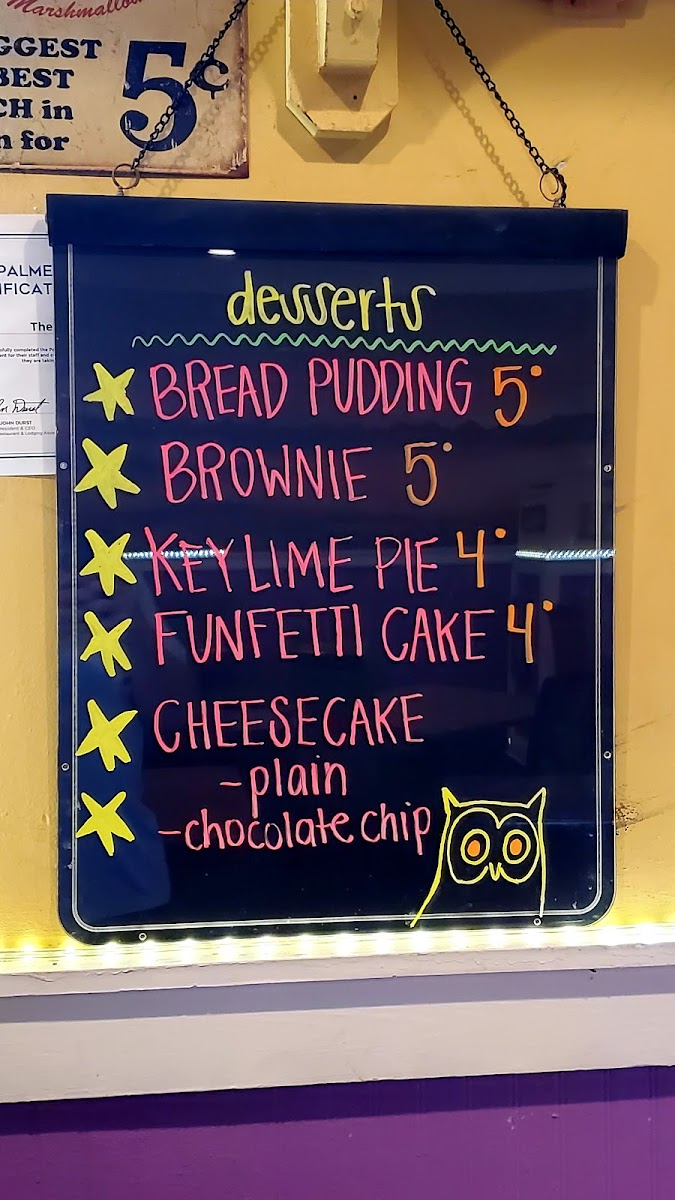 Marshmallow
GGEST
BEST
CH in
n for
5¢
PALME
IFICAT
The
they are takin
JOHN DURST
President & CEO
desserts
BREAD PUDDING 5°
BROWNIE 5°
KEY LIME PIE 4°
FUNFETTI CAKE 4°
CHEESECAKE
-plain
-chocolate chip